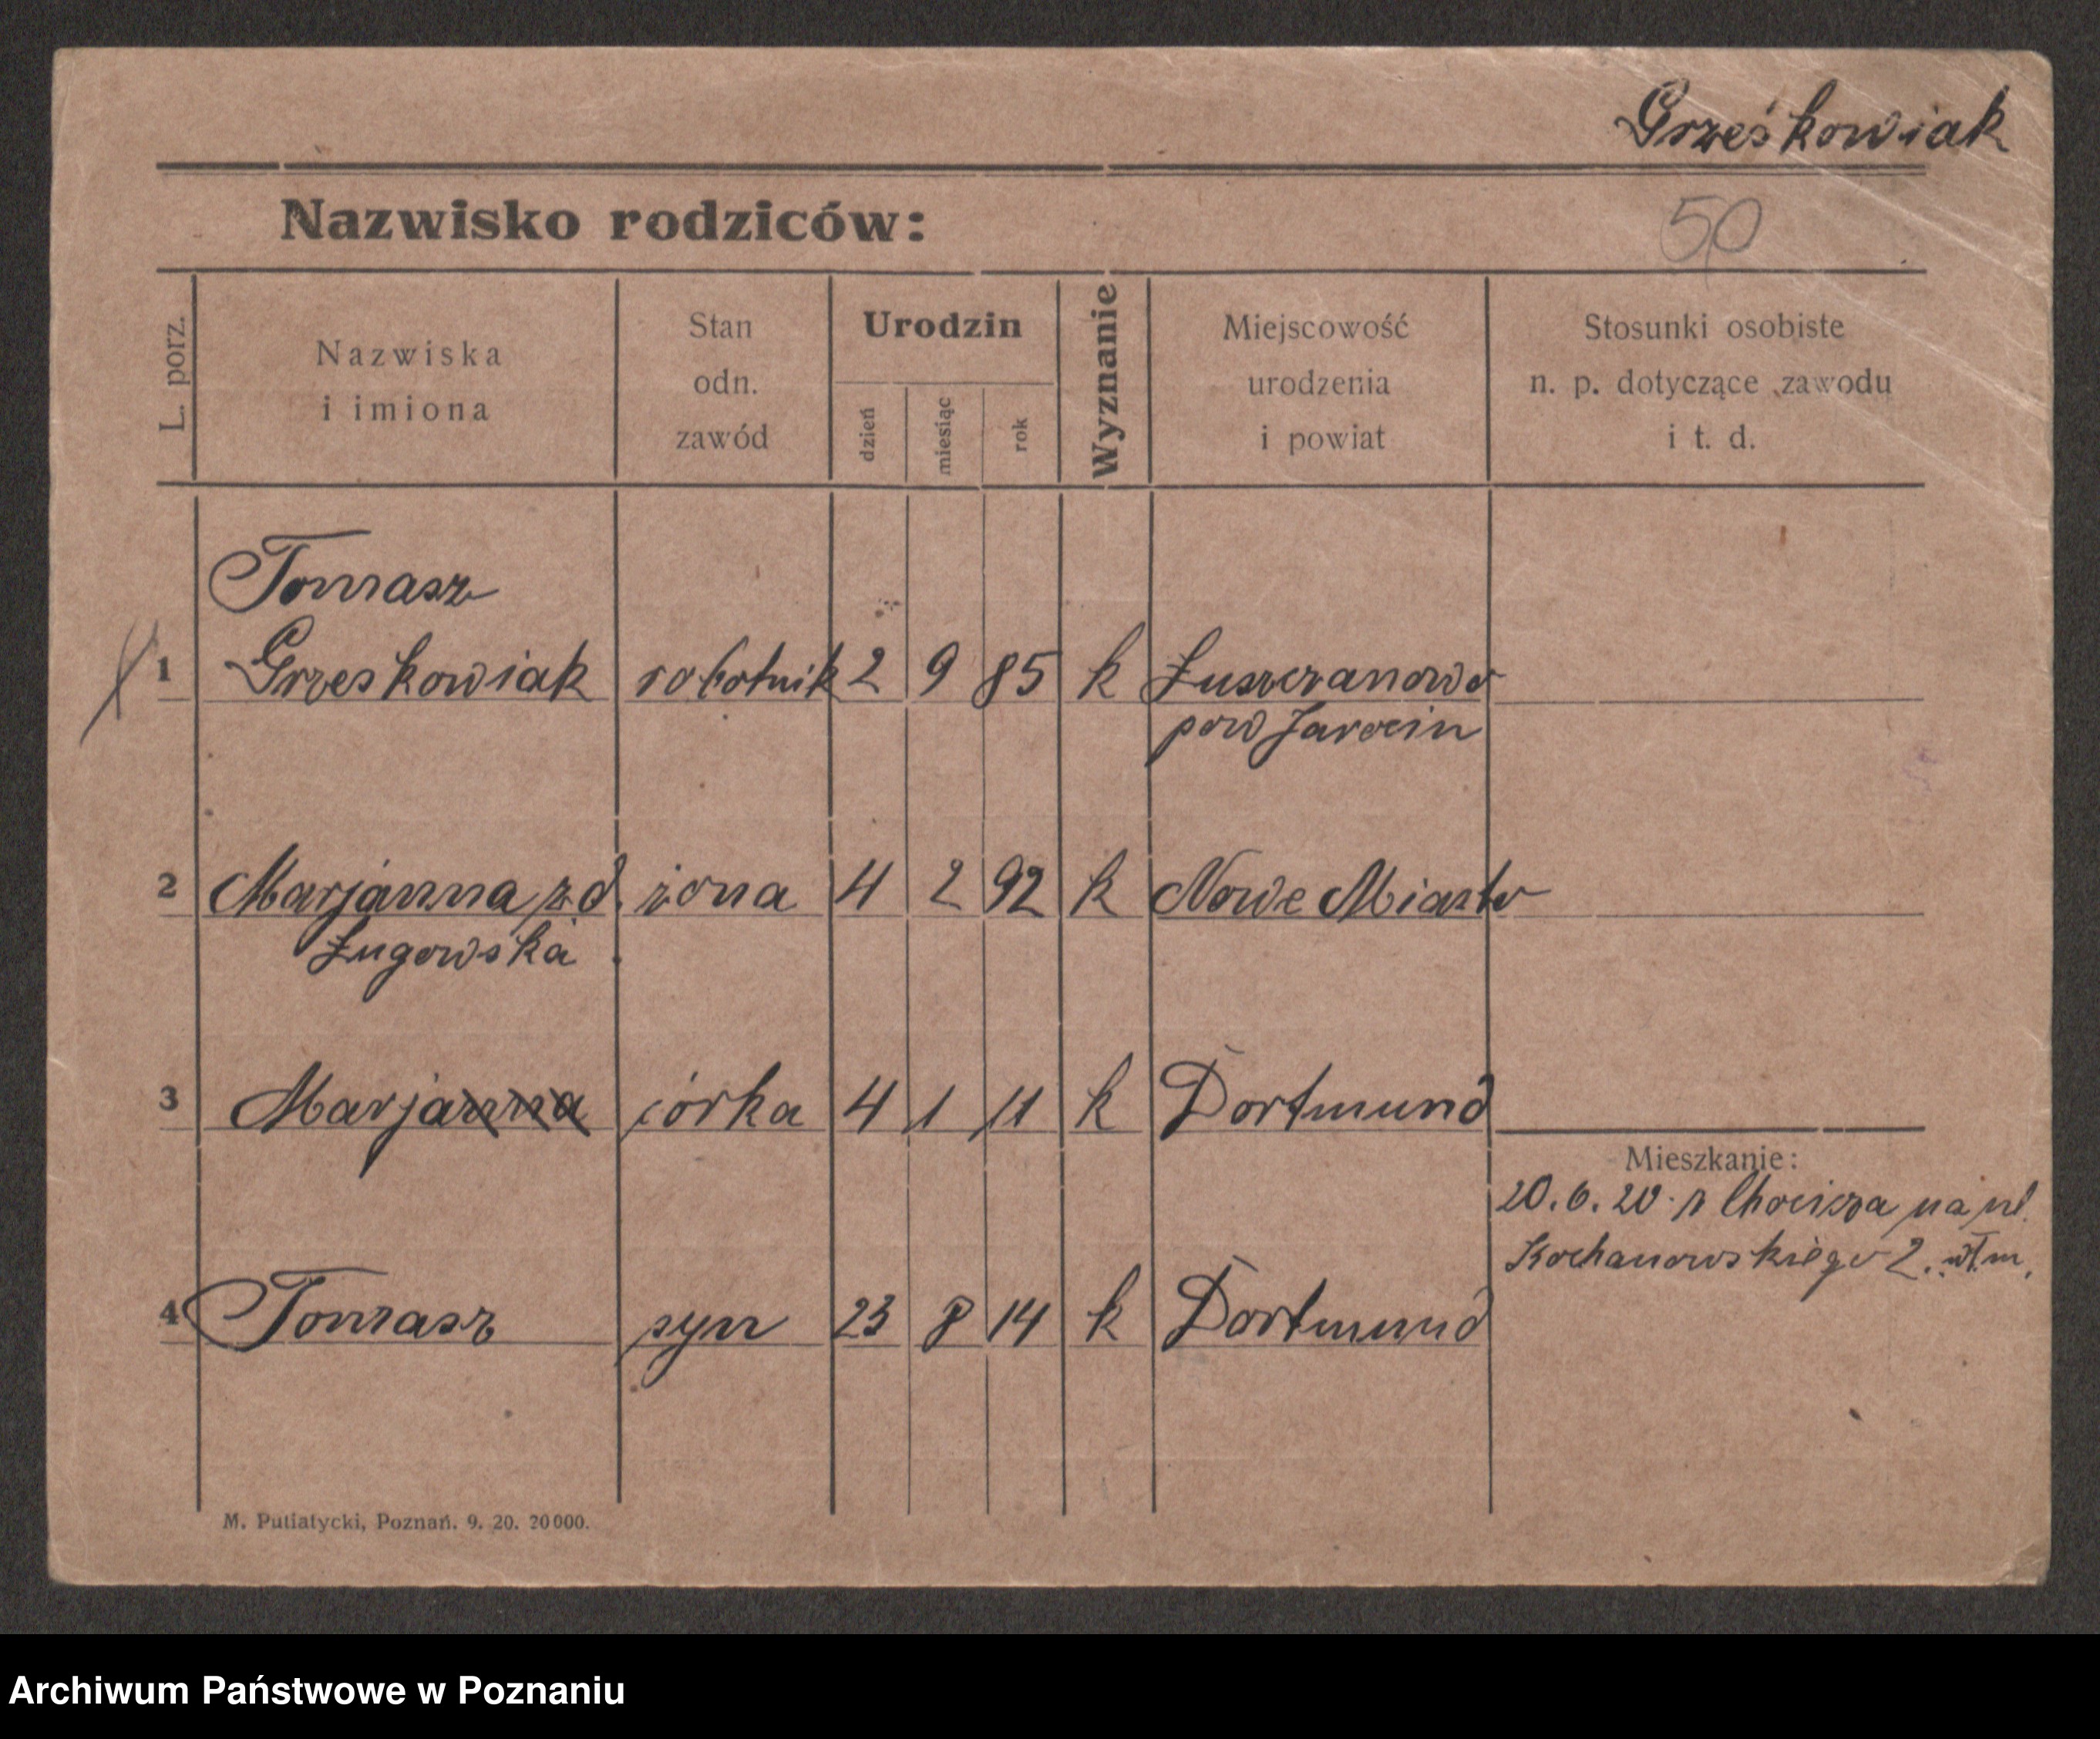 Grześkowiak
Nazwisko rodziców:
50
L. porz.
Nazwiska
i imiona
Stan
odn.
zawód
Urodzin
dzień
miesiąc
rok
Wyznanie
Miejscowość
urodzenia
i powiat
Stosunki osobiste
n. p. dotyczące zawodu
i t. d.
Tomasz
1 Grześkowiak robotnik 2 9 85 k Łuszczanowo
pow Jarocin
2 Marjanna z d. żona 4 2 92 k Nowe Miasto
Ługowska
3 Marjanna córka 4 1 11 k Dortmund
Mieszkanie:
20. 6. 20. z Chocisza na ul.
Kochanowskiego 2. wł. m.
4 Tomasz syn 23 8 14 k Dortmund
M. Putiatycki, Poznań. 9. 20. 20000.
Archiwum Państwowe w Poznaniu